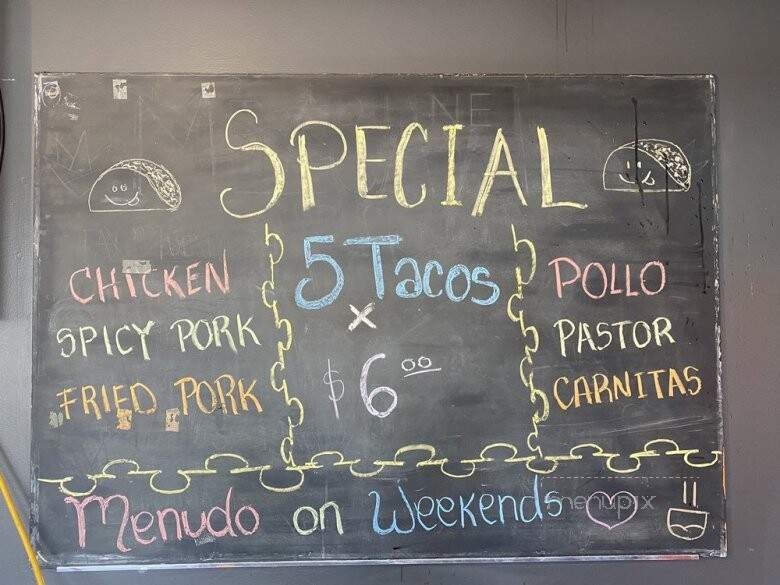 SPECIAL
5 Tacos
x
$6.00
CHICKEN
SPICY PORK
FRIED PORK
POLLO
PASTOR
CARNITAS
Menudo on Weekends
menupix